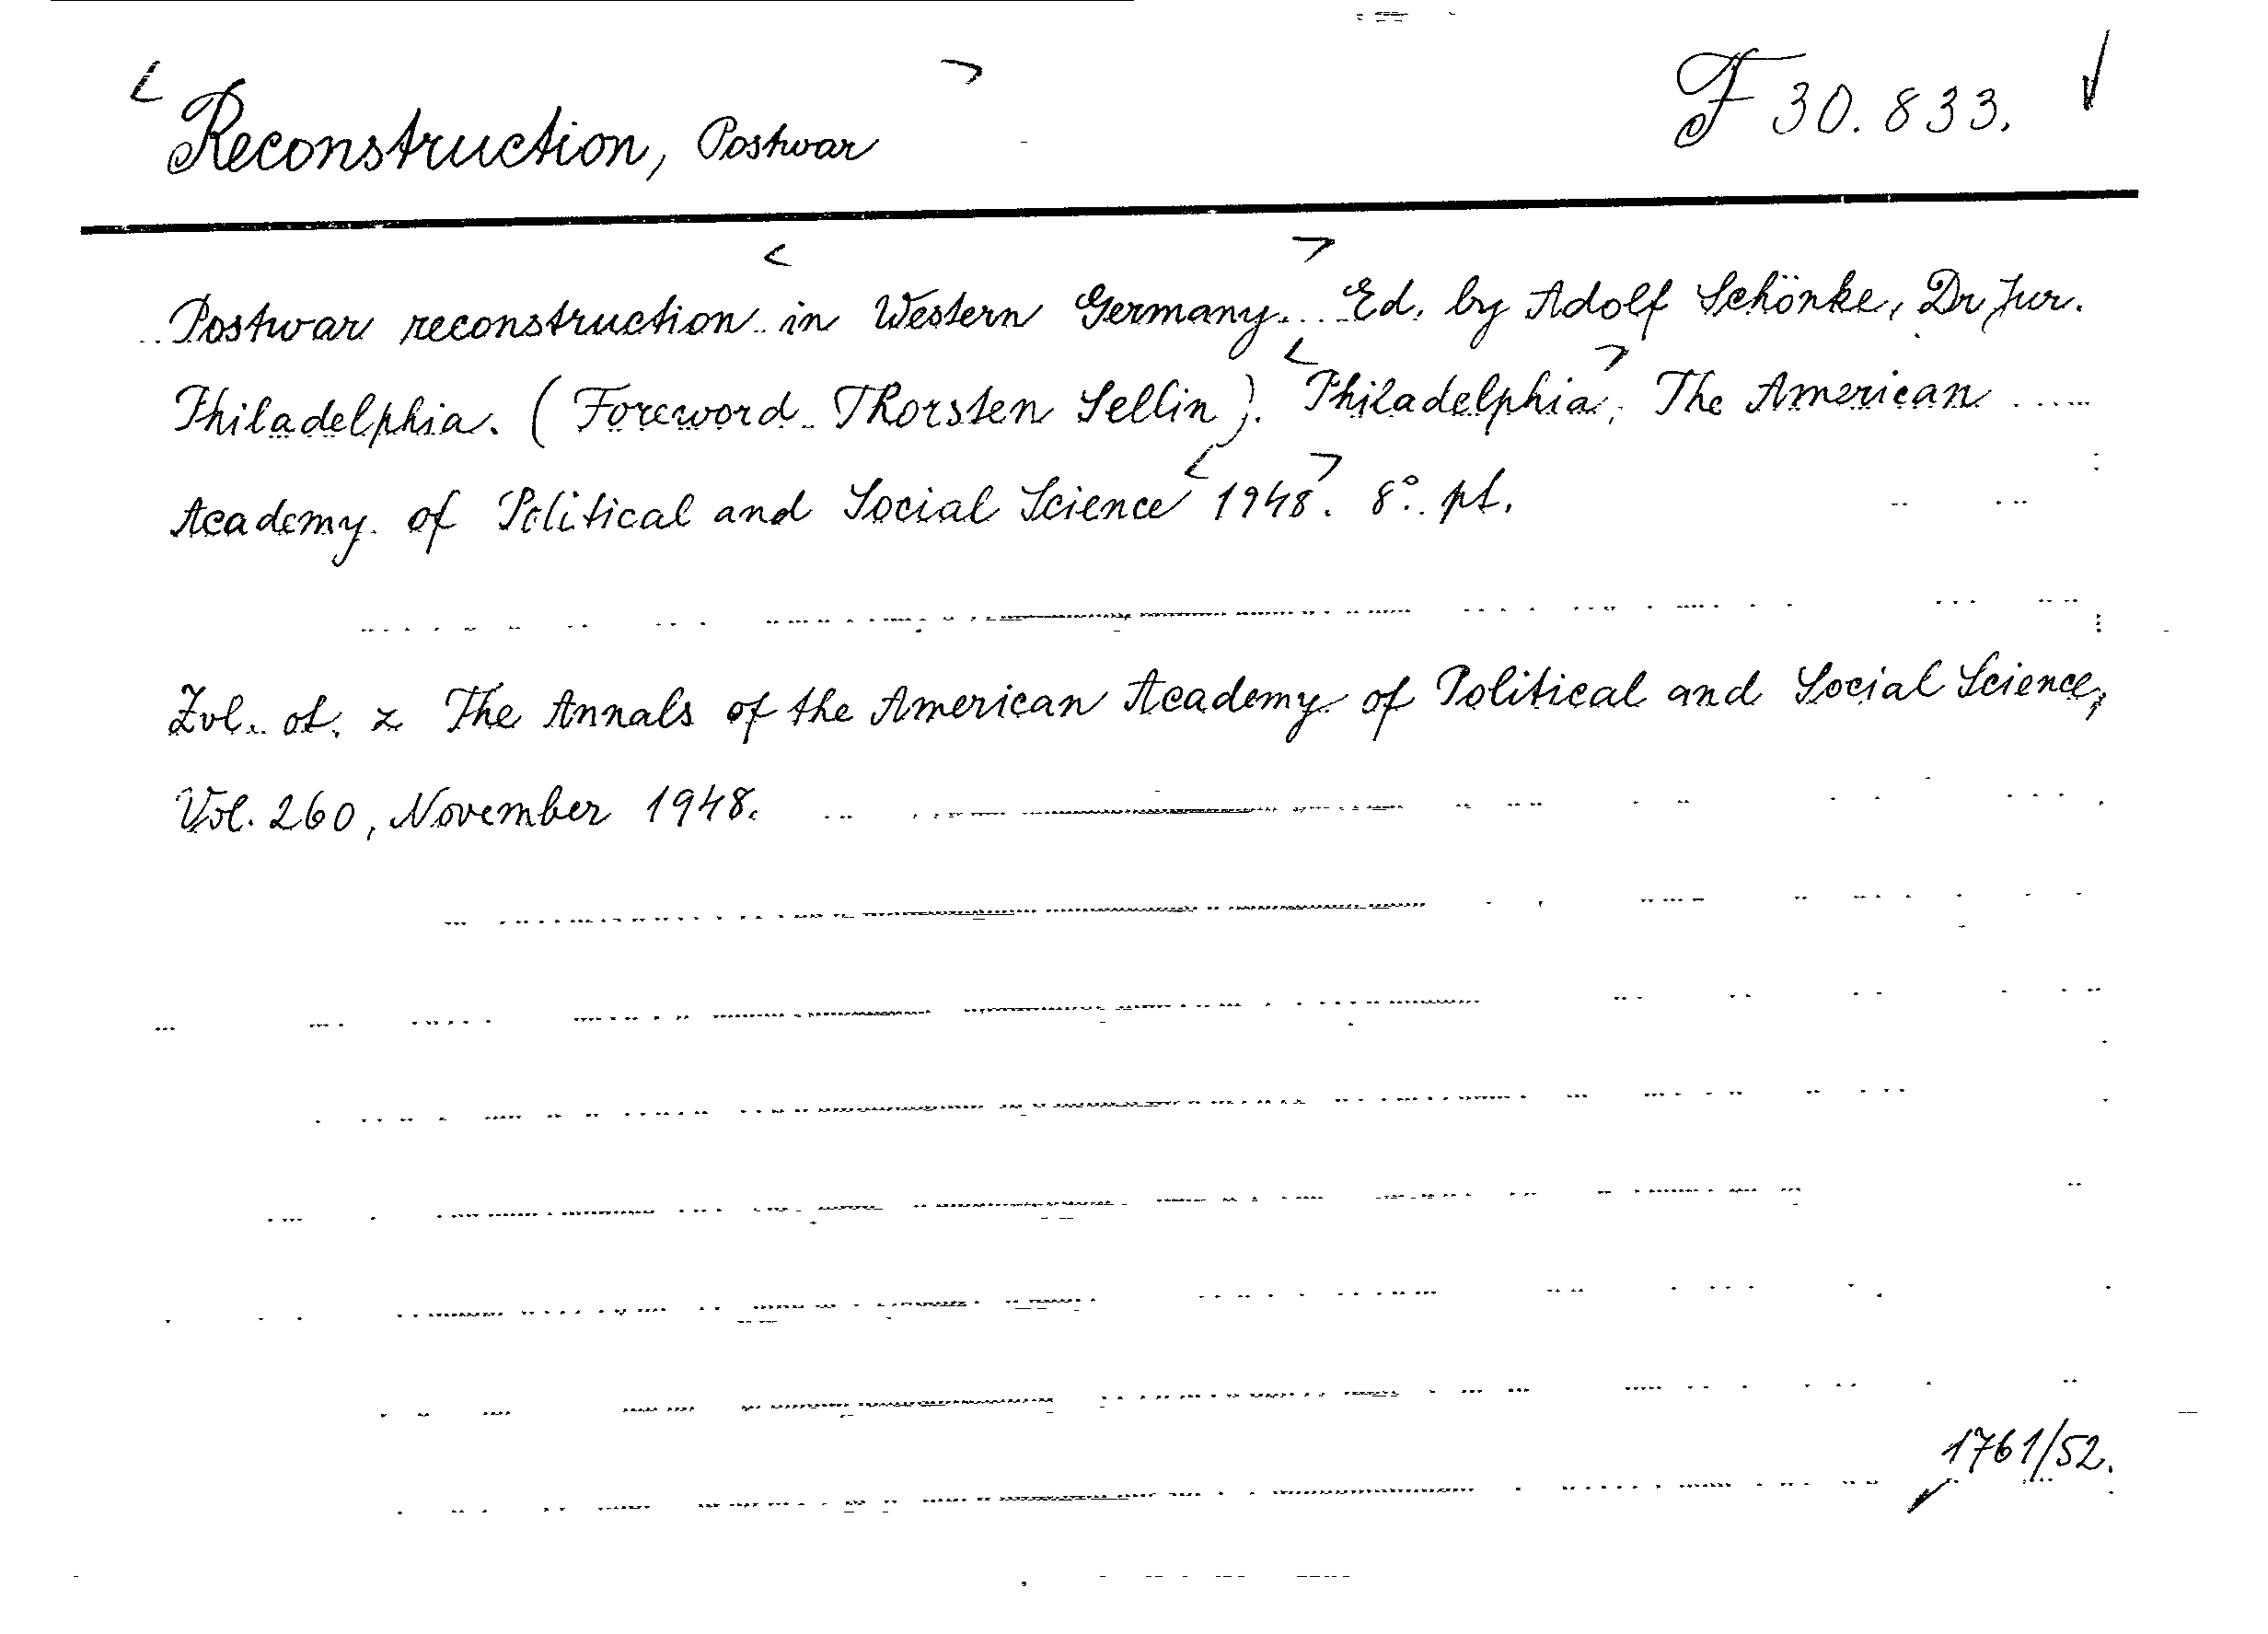 < Reconstruction, Postwar > F 30.833.
Postwar reconstruction in < Western Germany. > Ed. by Adolf Schönke, Dr Jur.
Philadelphia. (Foreword Thorsten Sellin). < Philadelphia >, The American
Academy of Political and Social Science < 1948 >. 8°. pt.
Zvl. ot. z The Annals of the American Academy of Political and Social Science,
Vol. 260, November 1948.
1761/52.